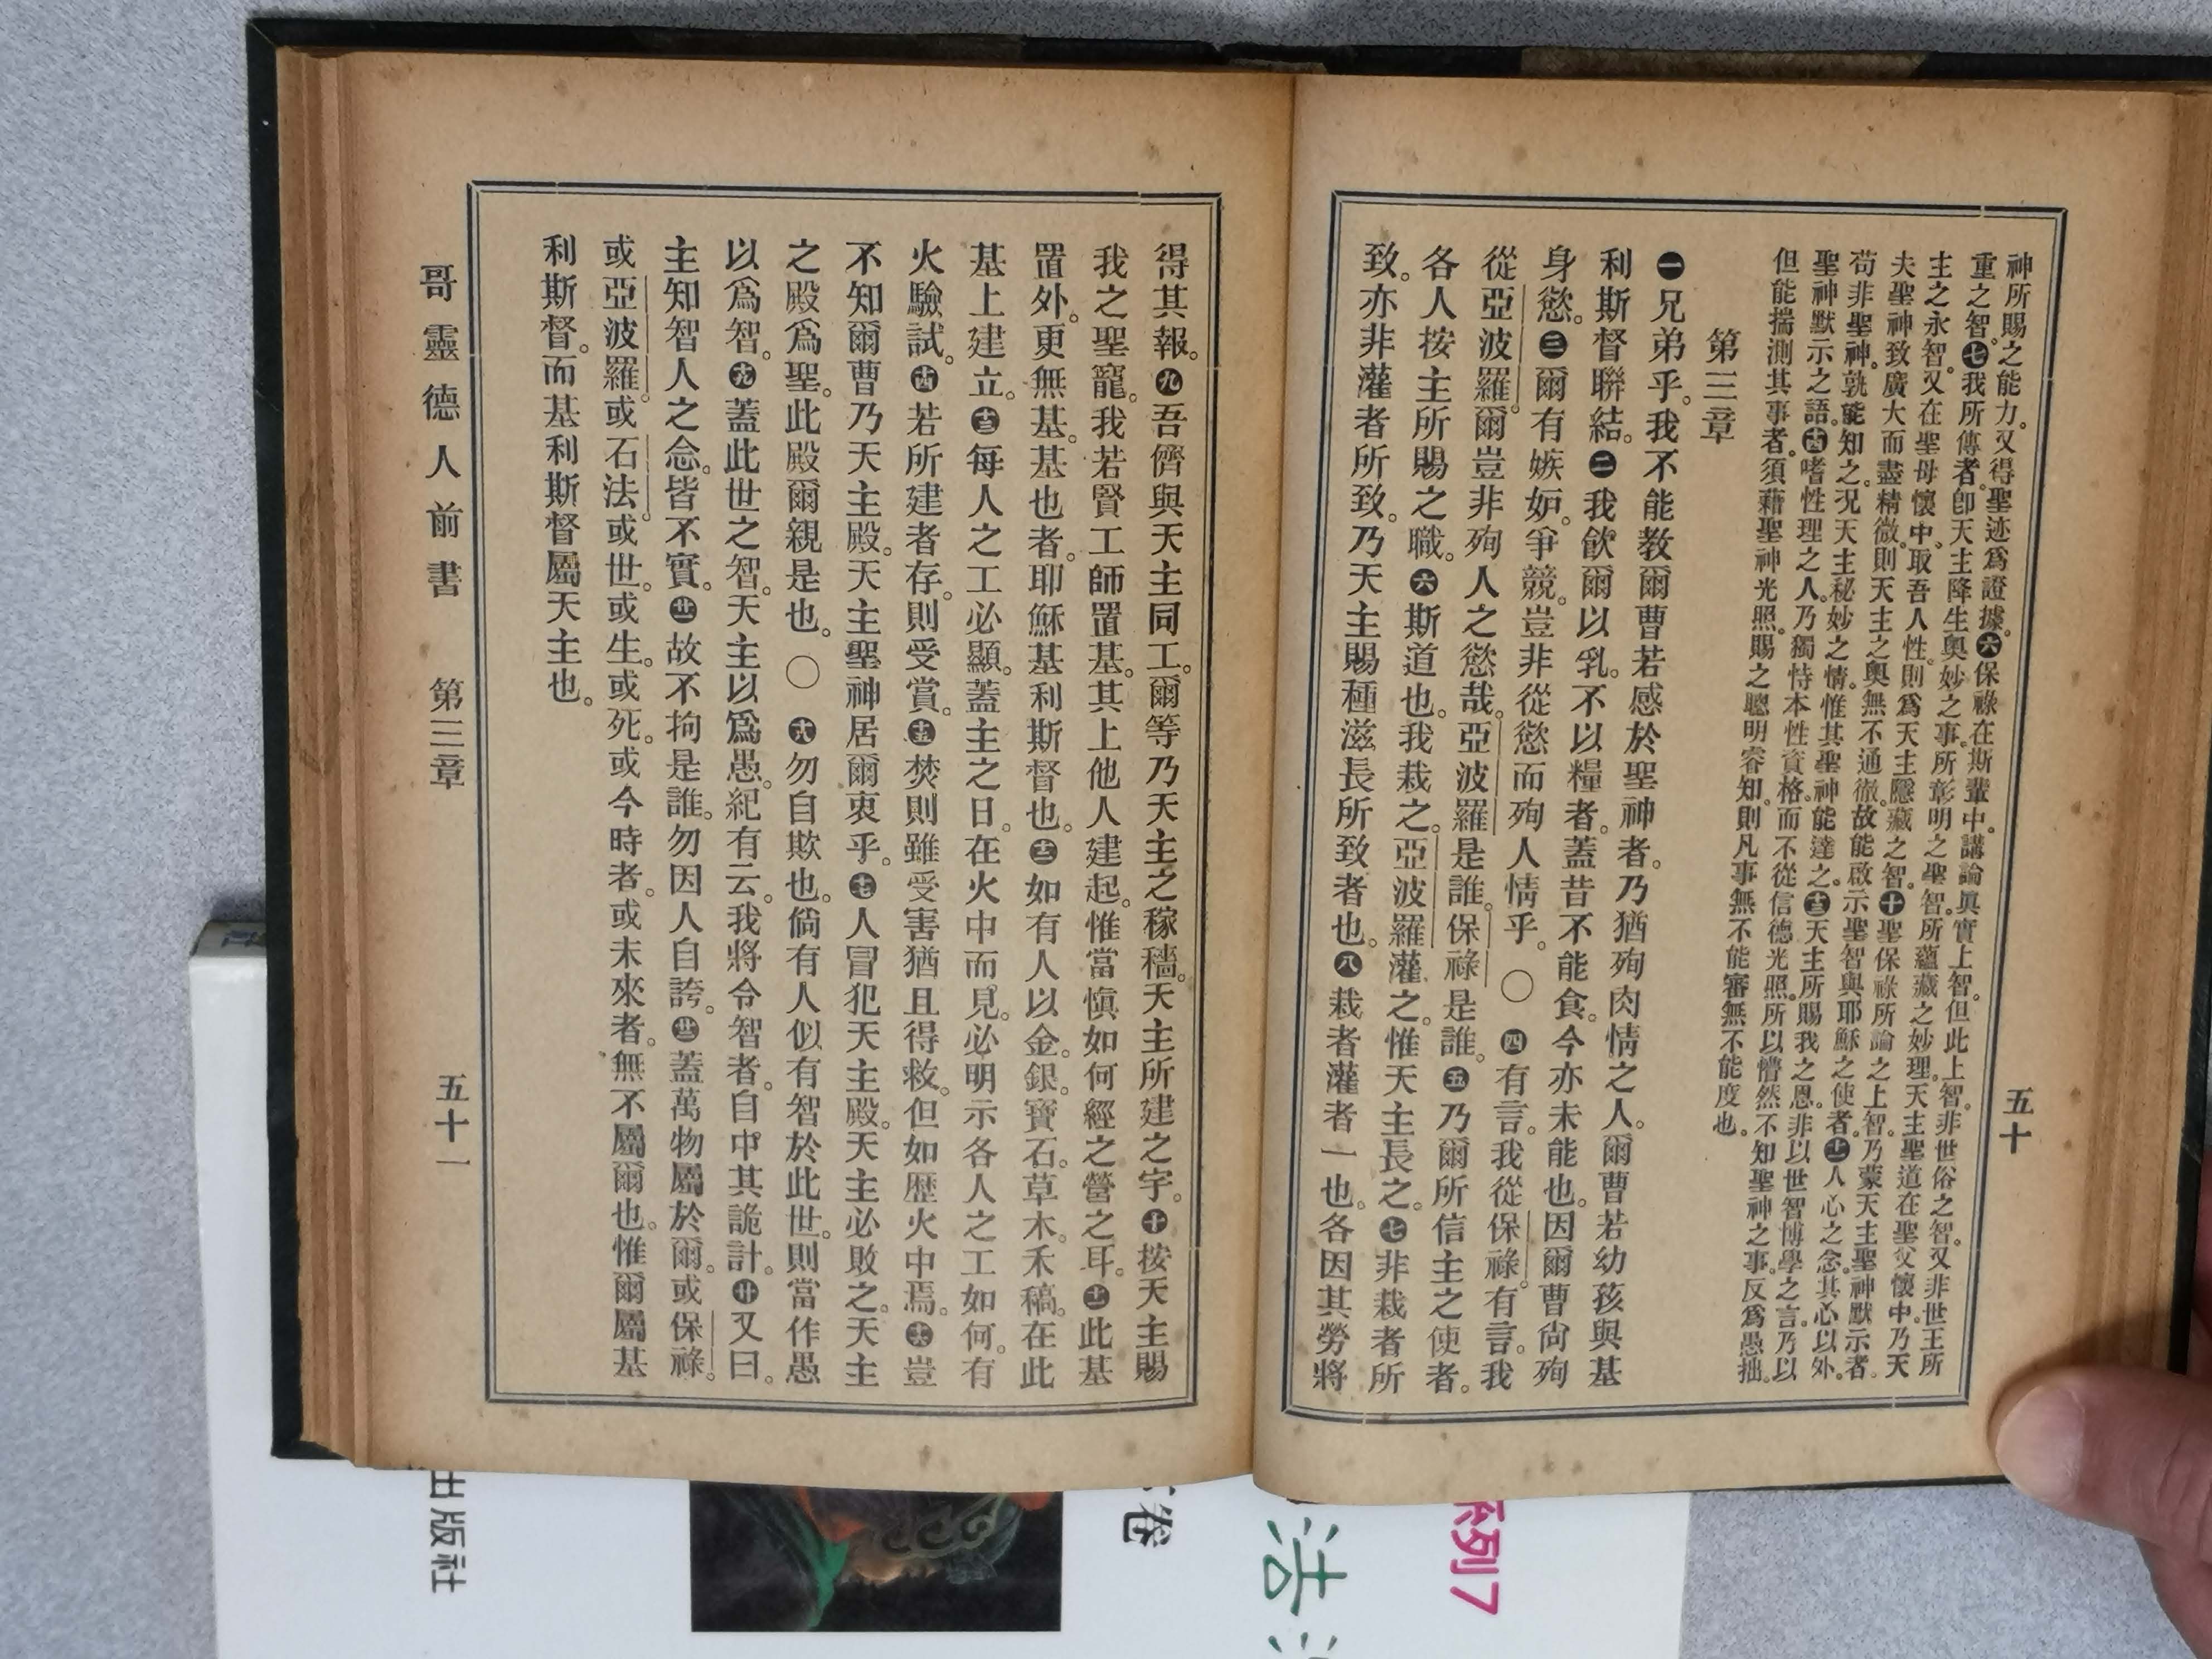 五十
神所賜之能力。又得聖迹爲證據。六保祿在斯輩中。講論眞實上智。但此上智。非世俗之智。又非世王所
重之智。七我所傳者。卽天主降生奧妙之事。所彰明之聖智。所蘊藏之妙理。天主聖道在聖父懷中。乃天
主之永智。又在聖母懷中。取吾人性。則爲天主隱藏之智。十聖保祿所論之上智。乃蒙天主聖神默示者。
夫聖神致廣大而盡精微。則天主之奧無不通徹。故能啟示聖智與耶穌之使者。十一人心之念。其心以外。
苟非聖神。孰能知之。况天主秘妙之情。惟其聖神能達之。十二天主所賜我之恩。非以世智博學之言。乃以
聖神默示之語。十四嗜性理之人。乃獨恃本性資格。而不從信德光照。所以懵然不知聖神之事。反爲愚拙。
但能揣測其事者。須藉聖神光照。賜之聰明睿知。則凡事無不能審。無不能度也。
第三章
一兄弟乎。我不能教爾曹若感於聖神者。乃猶殉肉情之人。爾曹若幼孩與基
利斯督聯結。二我飲爾以乳。不以糧者。蓋昔不能食。今亦未能也。因爾曹尙殉
身慾。三爾有嫉妬。爭競。豈非從慾而殉人情乎。〇四有言。我從保祿。有言。我
從亞波羅。爾豈非殉人之慾哉。亞波羅是誰。保祿是誰。五乃爾所信主之使者。
各人按主所賜之職。六斯道也。我栽之。亞波羅灌之。惟天主長之。七非栽者所
致。亦非灌者所致。乃天主賜種滋長所致者也。八栽者灌者一也。各因其勞將
得其報。九吾儕與天主同工。爾等乃天主之稼穡。天主所建之宇。十按天主賜
我之聖寵。我若賢工師置基。其上他人建起。惟當愼如何經之營之耳。十一此基
置外。更無基。基也者。耶穌基利斯督也。十二如有人以金。銀。寶石。草木。禾稿。在此
基上建立。十三每人之工必顯。蓋主之日。在火中而見。必明示各人之工如何。有
火驗試。十四若所建者存。則受賞。十五焚則雖受害猶且得救。但如歷火中焉。十六豈
不知爾曹乃天主殿。天主聖神居爾衷乎。十七人冒犯天主殿。天主必敗之。天主
之殿爲聖。此殿爾親是也。〇十八勿自欺也。倘有人似有智於此世。則當作愚
以爲智。十九蓋此世之智。天主以爲愚。紀有云。我將令智者。自中其詭計。廿又曰。
主知智人之念。皆不實。廿一故不拘是誰。勿因人自誇。廿二蓋萬物屬於爾。或保祿。
或亞波羅。或石法。或世。或生。或死。或今時者。或未來者。無不屬爾也。惟爾屬基
利斯督。而基利斯督屬天主也。
哥靈德人前書 第三章 五十一
出版社
卷
法
系列7